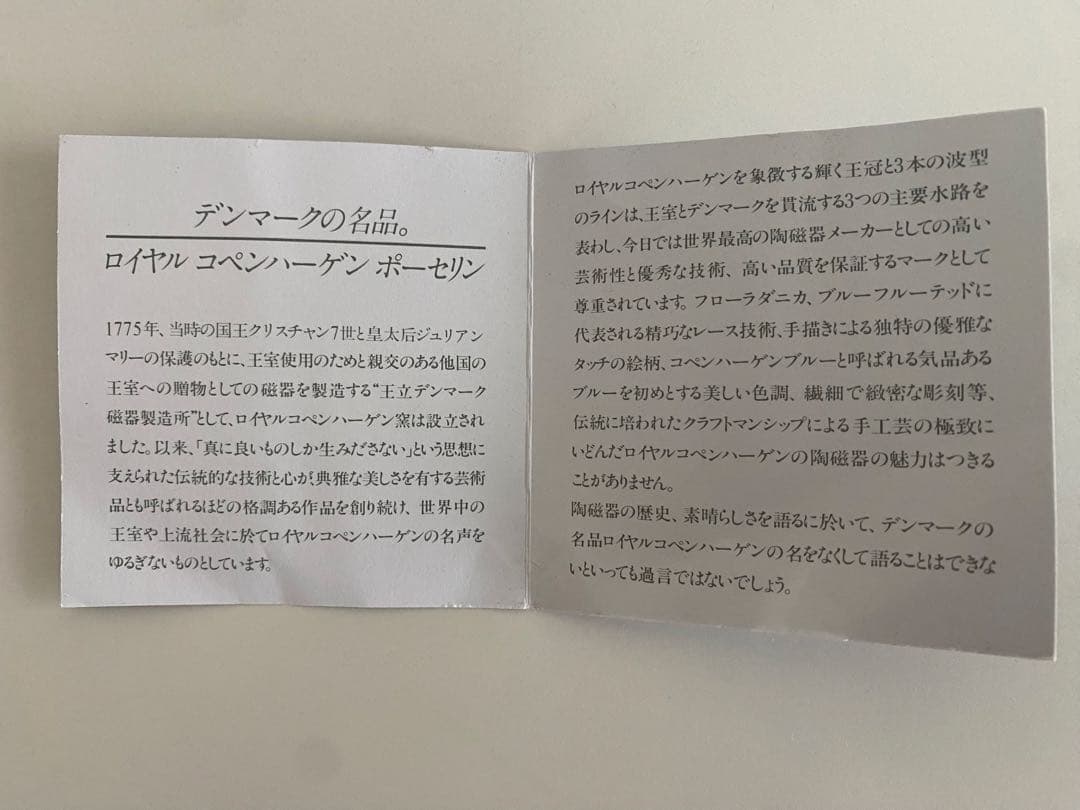 デンマークの名品。
ロイヤル コペンハーゲン ポーセリン
1775年、当時の国王クリスチャン7世と皇太后ジュリアン
マリーの保護のもとに、王室使用のためと親交のある他国の
王室への贈物としての磁器を製造する“王立デンマーク
磁器製造所”として、ロイヤルコペンハーゲン窯は設立され
ました。以来、「真に良いものしか生みださない」という思想に
支えられた伝統的な技術と心が、典雅な美しさを有する芸術
品とも呼ばれるほどの格調ある作品を創り続け、世界中の
王室や上流社会に於てロイヤルコペンハーゲンの名声を
ゆるぎないものとしています。
ロイヤルコペンハーゲンを象徴する輝く王冠と3本の波型
のラインは、王室とデンマークを貫流する3つの主要水路を
表わし、今日では世界最高の陶磁器メーカーとしての高い
芸術性と優秀な技術、高い品質を保証するマークとして
尊重されています。フローラダニカ、ブルーフルーテッドに
代表される精巧なレース技術、手描きによる独特の優雅な
タッチの絵柄、コペンハーゲンブルーと呼ばれる気品ある
ブルーを初めとする美しい色調、繊細で緻密な彫刻等、
伝統に培われたクラフトマンシップによる手工芸の極致に
いどんだロイヤルコペンハーゲンの陶磁器の魅力はつきる
ことがありません。
陶磁器の歴史、素晴らしさを語るに於いて、デンマークの
名品ロイヤルコペンハーゲンの名をなくして語ることはできな
いといっても過言ではないでしょう。